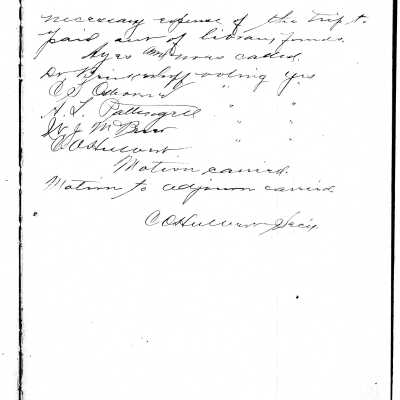 necessary expense of the trip to
paid out of library funds.
Ayes and noes called.
Dr Brinkerhoff voting yes
C S " "
A. L. Pattengill " "
W J McBride " "
C O Hulburt
Motion carried.
Motion to adjourn carried
C O Hulburt Secy.